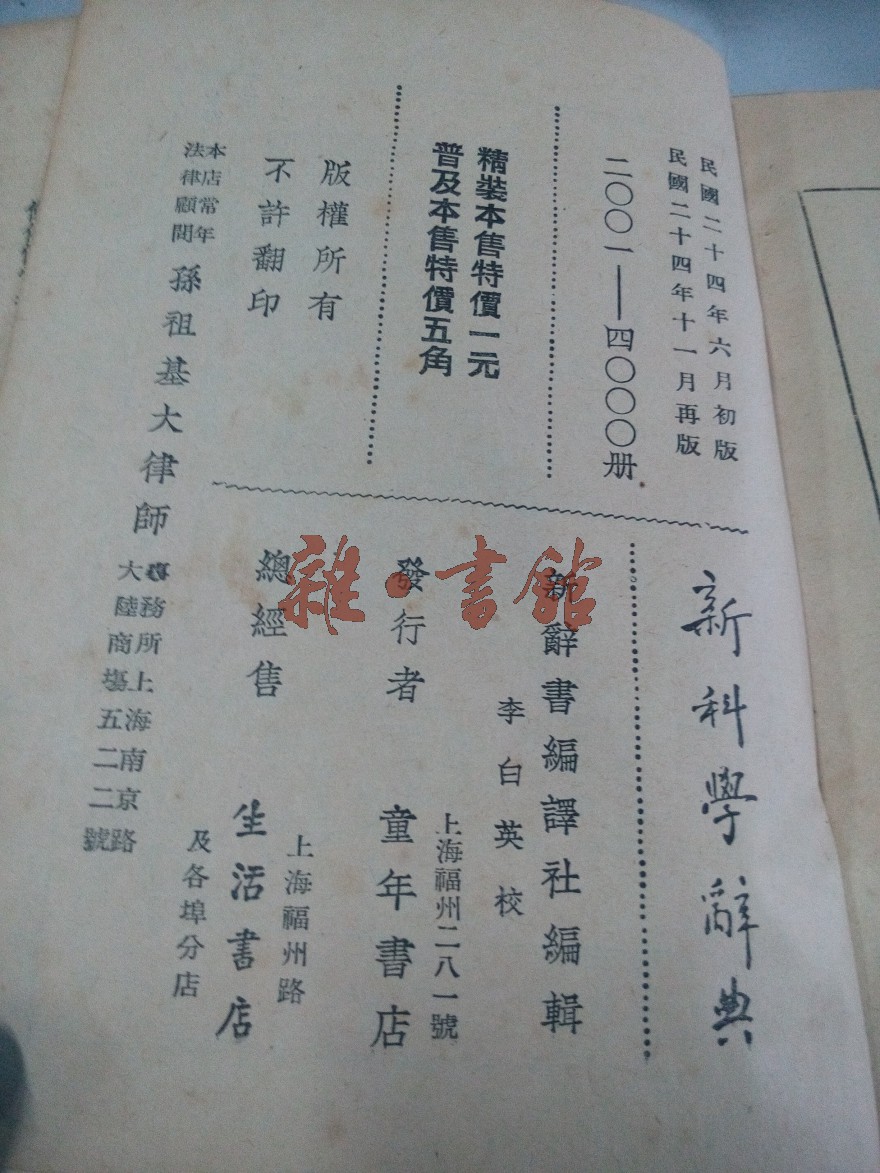 民國二十四年六月初版
民國二十四年十一月再版
二〇〇一——四〇〇〇册
精裝本售特價一元
普及本售特價五角
版權所有
不許翻印
本店常年
法律顧問
孫祖基大律師
事務所上海南京路
大陸商場五二二號
新科學辭典
新辭書編譯社編輯
李白英校
發行者
上海福州二八一號
童年書店
總經售
上海福州路
生活書店
及各埠分店
雜·書館